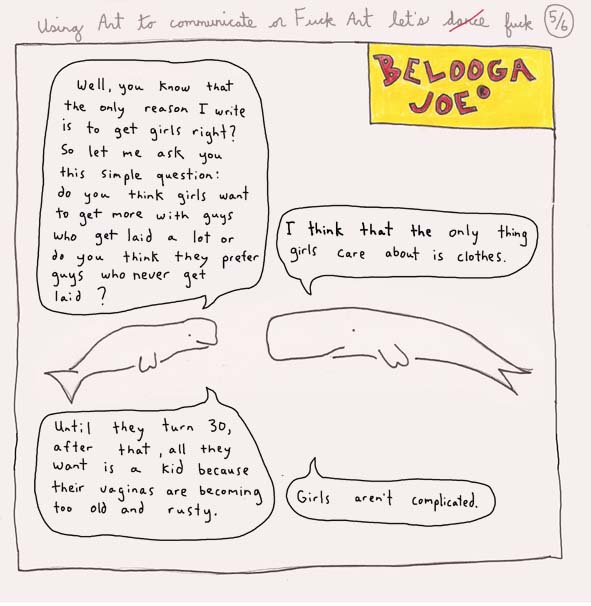 Using Art to communicate or Fuck Art let's dance fuck 5/6
BELOOGA
JOE®
Well, you know that
the only reason I write
is to get girls right?
So let me ask you
this simple question:
do you think girls want
to get more with guys
who get laid a lot or
do you think they prefer
guys who never get
laid ?
I think that the only thing
girls care about is clothes.
Until they turn 30,
after that, all they
want is a kid because
their vaginas are becoming
too old and rusty.
Girls aren't complicated.